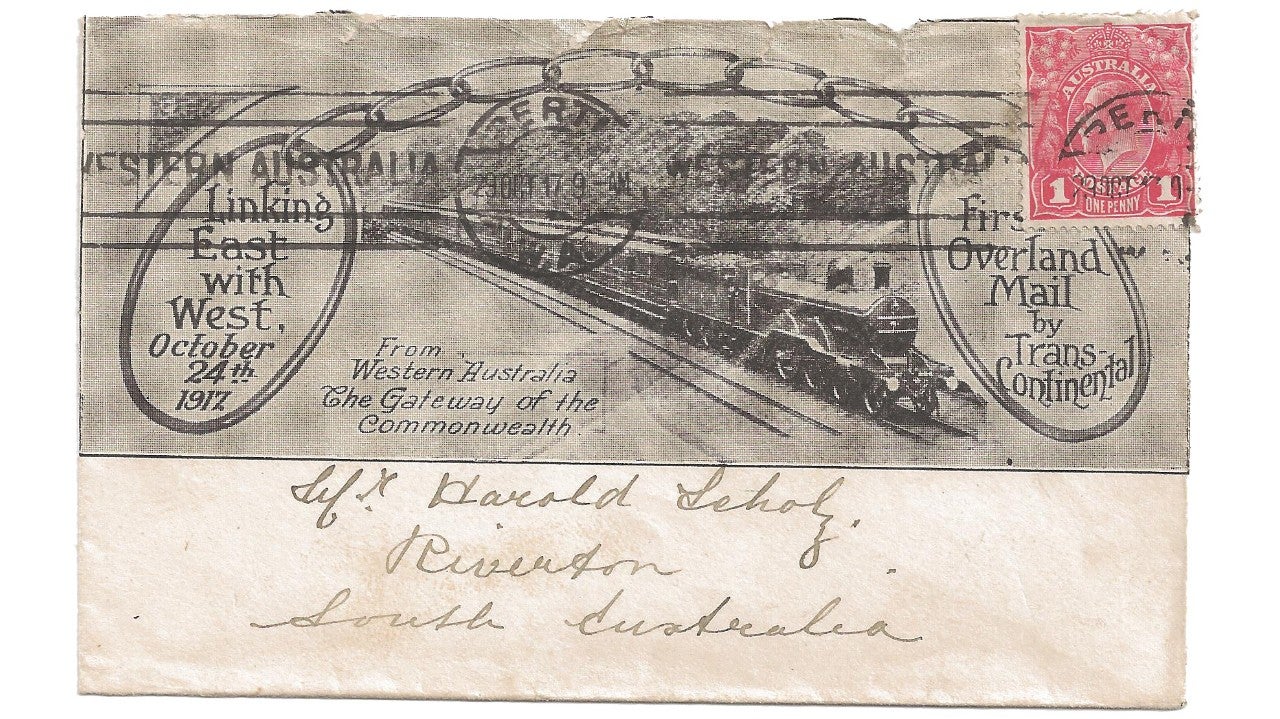 WESTERN AUSTRALIA
PERTH
29 OCT 17 9 - AM
W.A.
WESTERN AUSTRAL
Linking
East
with
West,
October
24th
1917.
From
Western Australia
The Gateway of the
Commonwealth.
First
Overland
Mail
by
Trans-
Continental
AUSTRALIA
1 POSTAGE 1
ONE PENNY
PERTH
29 OCT 17 9-
Mr. Harold Scholz.
Riverton
South Australia